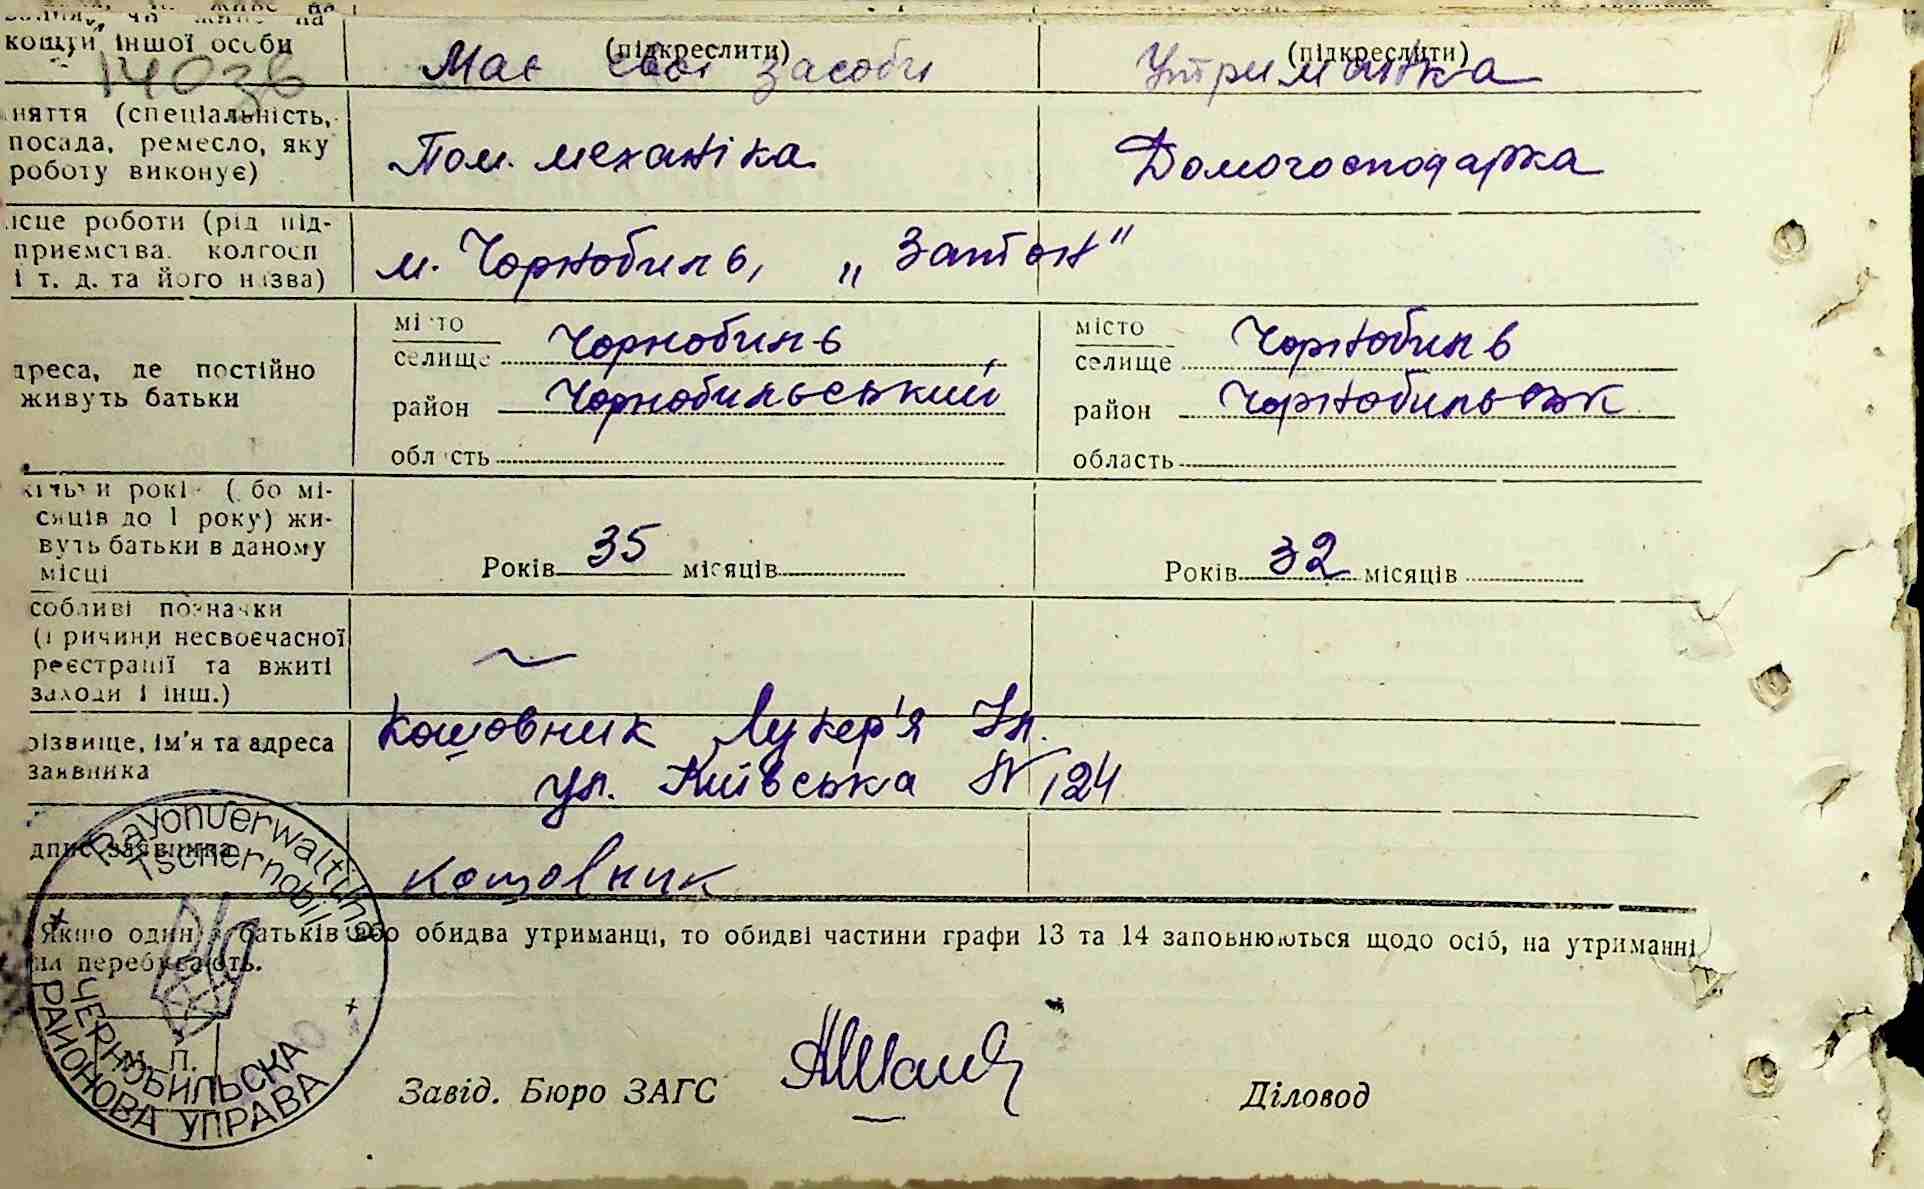 кошти іншої особи
(підкреслити) (підкреслити)
Має свої засоби Утриманка
няття (спеціальність,
посада, ремесло, яку
роботу виконує)
Пом. механіка Домогосподарка
ісце роботи (рід під-
приємства. колгосп
і т. д. та його назва)
м. Чорнобиль, „Затон"
дреса, де постійно
живуть батьки
місто Чорнобиль місто Чорнобиль
селище селище
район Чорнобильський район Чорнобильськ
область область
років ( бо мі-
сяців до 1 року) жи-
вуть батьки в даному
місці
Років 35 місяців Років 32 місяців
собливі позначки
(причини несвоєчасної
реєстрації та вжиті
заходи і інш.)
~
різвище, ім'я та адреса
заявника
Кошовник Лукер'я Ил.
ул. Київська № 124
дпис заявника
Кошовник
Якщо один з батьків або обидва утриманці, то обидві частини графи 13 та 14 заповнюються щодо осіб, на утриманні
перебувають.
Rayonverwaltung
Tschernobil
ЧЕРНОБИЛЬСКА
РАЙОНОВА УПРАВА
М. П.
Завід. Бюро ЗАГС Діловод